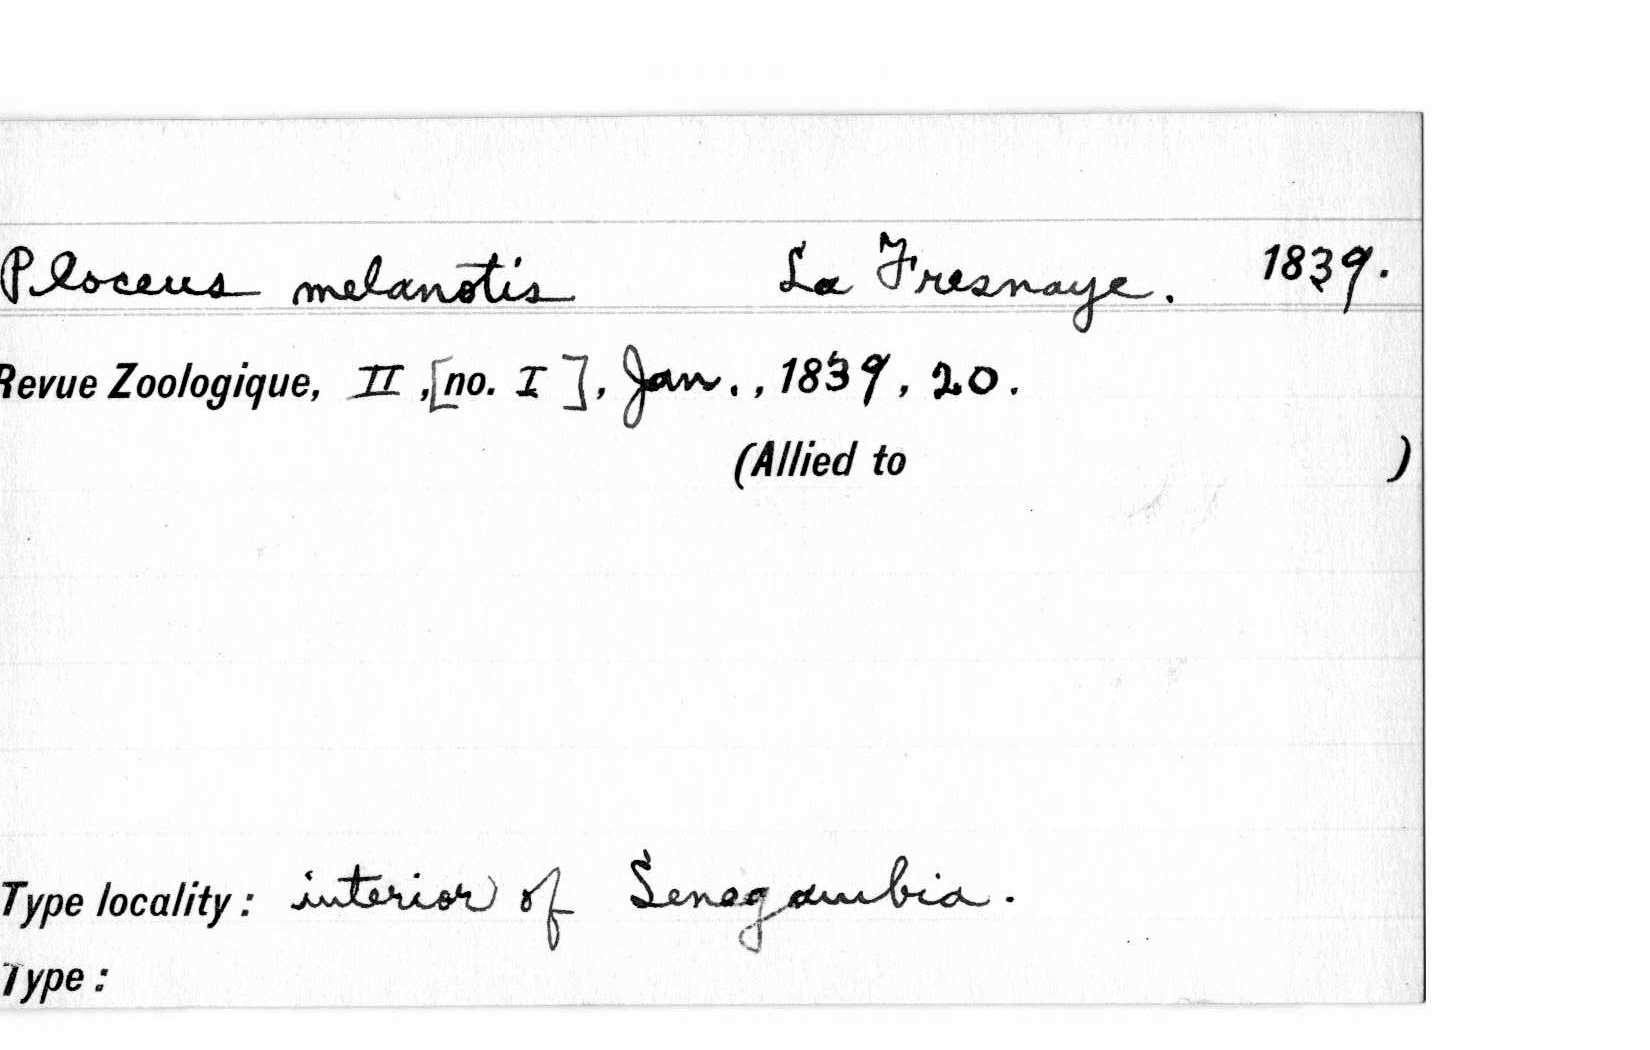 Ploceus melanotis La Fresnaye. 1839.
Revue Zoologique, II, [no. I], Jan., 1839, 20.
(Allied to )
Type locality: interior of Senegambia.
Type: